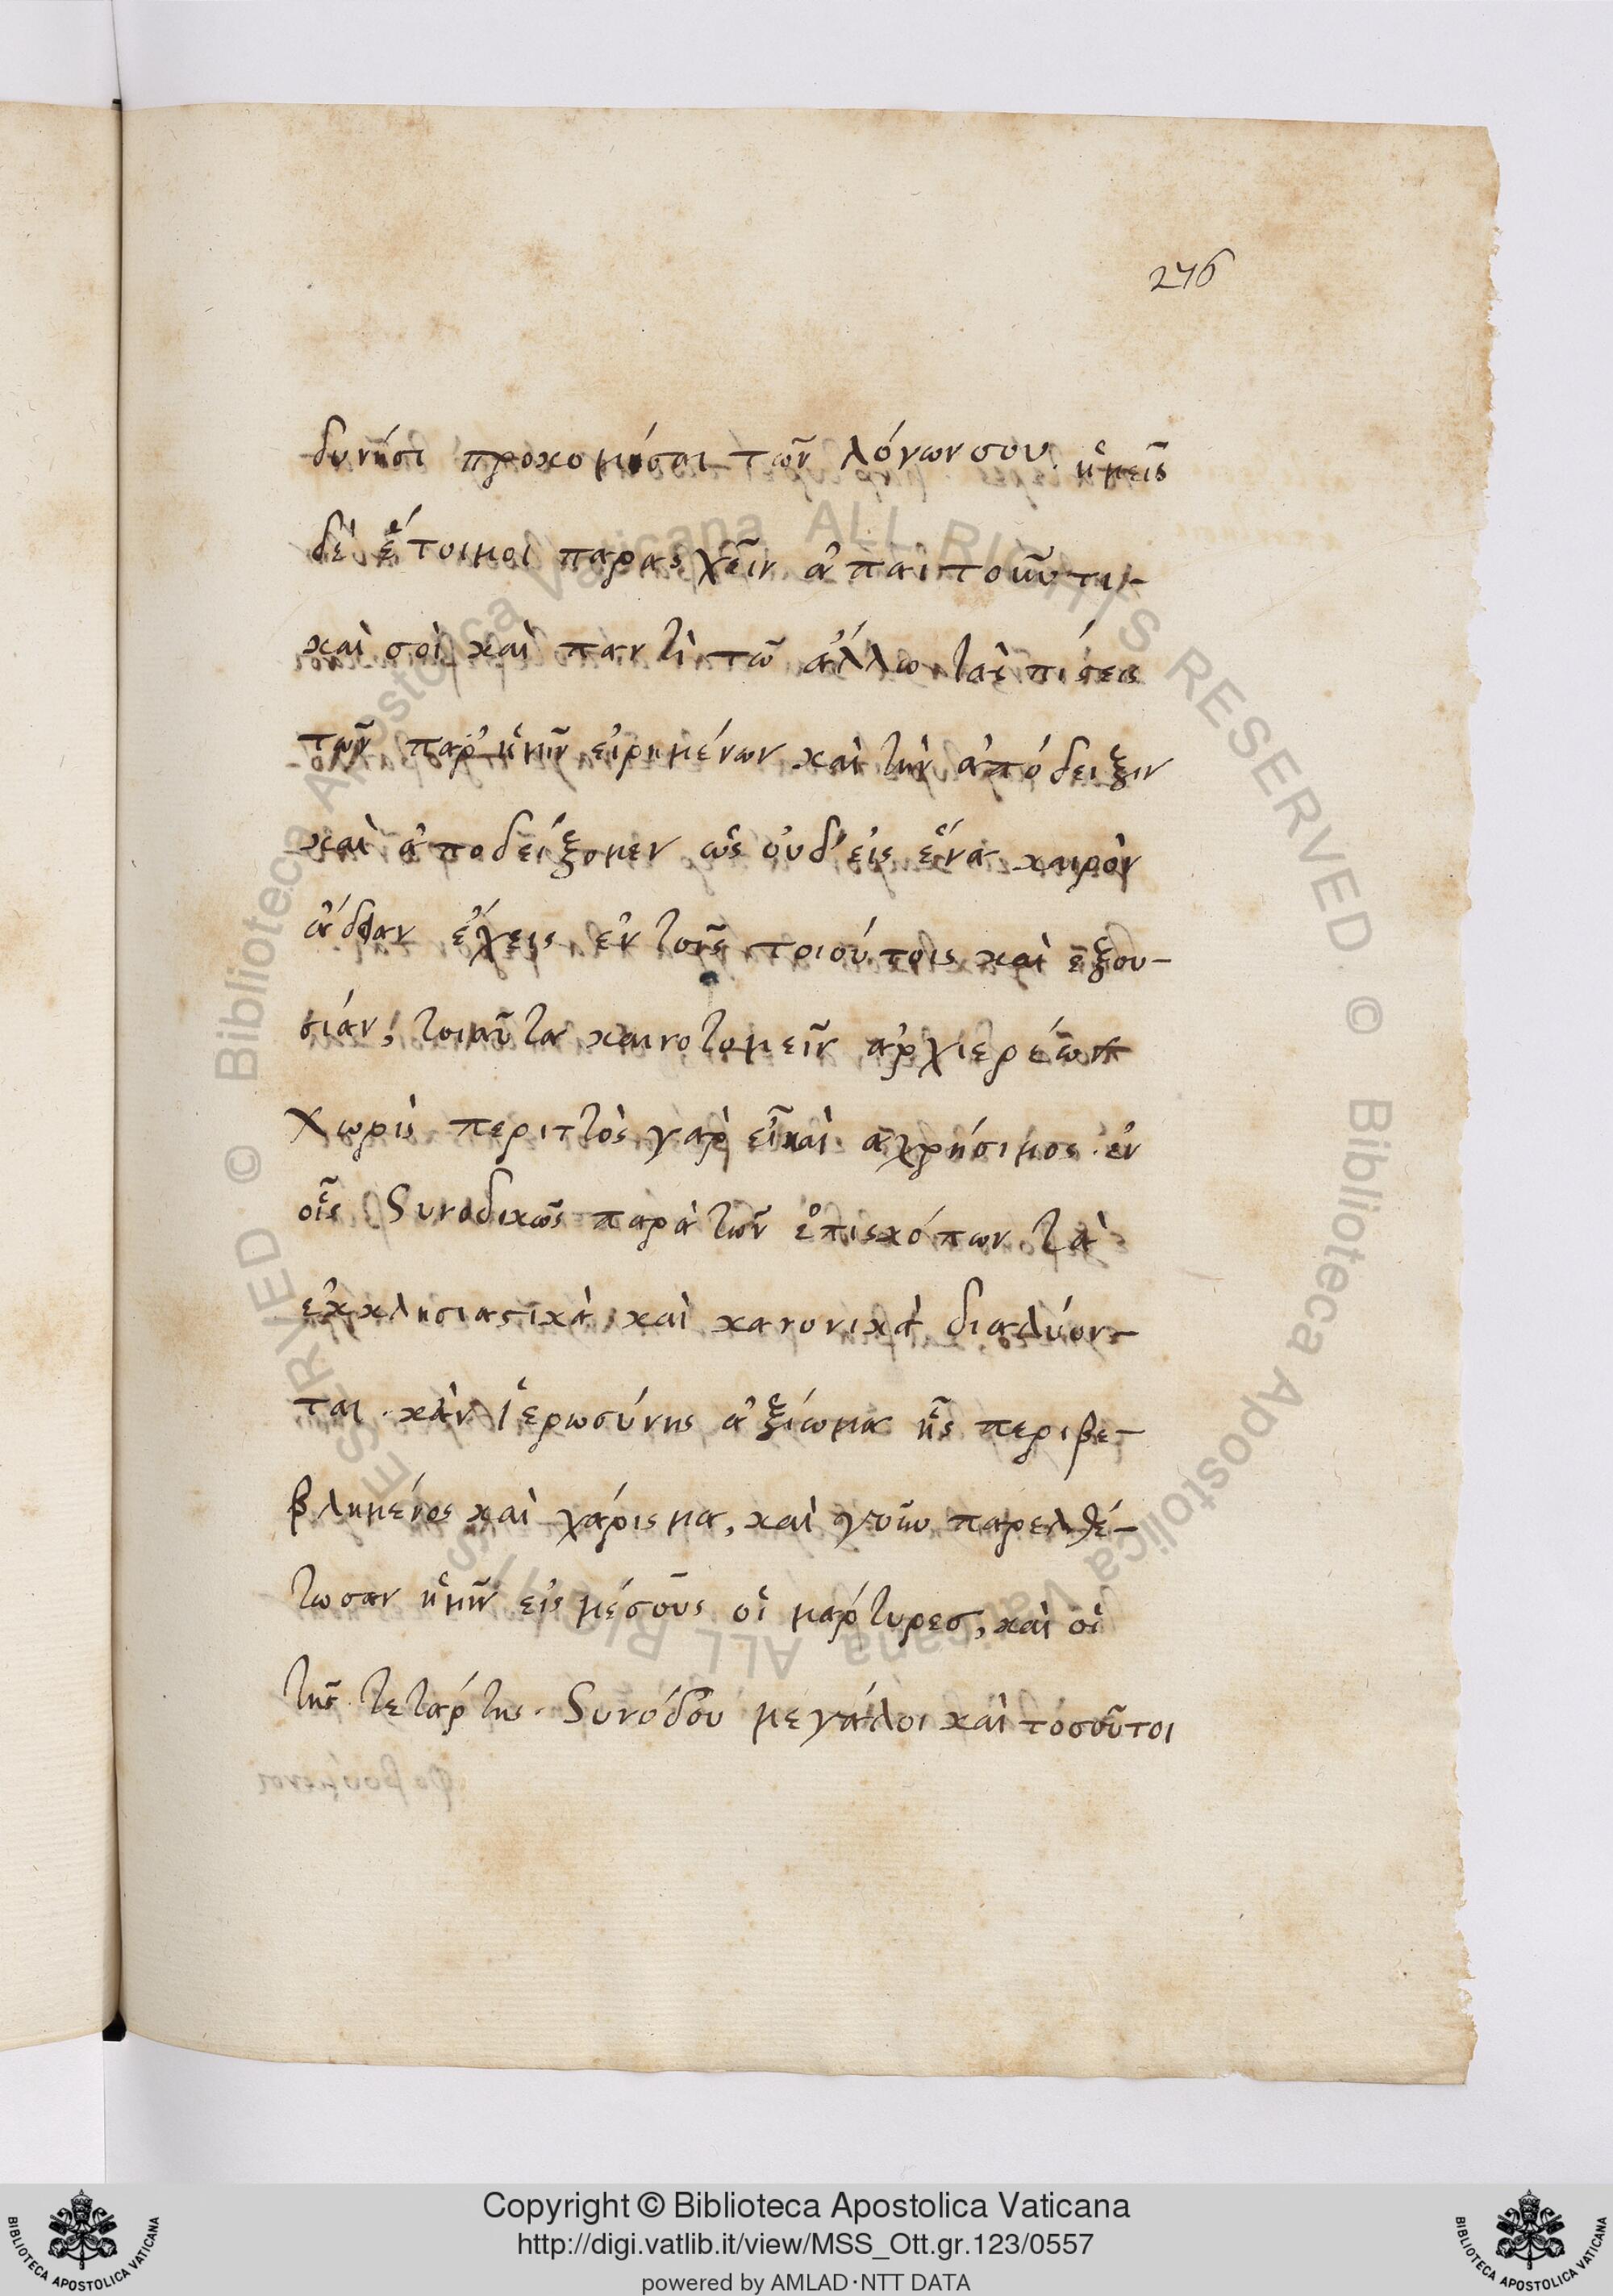 276
δυνήσι προκομίσαι τῶν λόγων σου. ἡμεῖς
δὲ ἕτοιμοι παρασχεῖν ἀπαιτοῦντι
καὶ σοὶ καὶ παντὶ τῶ ἄλλω τὰς πίστεις
τῶν παρ' ἡμῖν εἰρημένων καὶ τὴν ἀπόδειξιν
καὶ ἀποδείξομεν ὡς οὐδ' εἰς ἕνα καιρὸν
ἄδειαν ἔχεις ἐν τοῖς τοιούτοις καὶ εξου-
σιάν, τοιαῦτα καινοτομεῖν ἀρχιερέων
χωρὶς περιττὸς γαρ εἶ καὶ αχρήσιμος ἐν
οἷς Συνοδικῶς παρὰ τῶν ἐπισκόπων τὰ
εκκλησιαστικὰ καὶ κανονικὰ διαλύον-
ται. κἂν ἱερωσύνης ἀξίωμα ἧς περιβε-
βλημένος καὶ χάρισμα, καὶ γοῦν παρελθέ-
τωσαν ἡμῖν εἰς μέσους οἱ μάρτυρες, καὶ οἱ
τῆς τετάρτης Συνόδου μεγάλοι καὶ τοσοῦτοι
Copyright © Biblioteca Apostolica Vaticana
http://digi.vatlib.it/view/MSS_Ott.gr.123/0557
powered by AMLAD·NTT DATA
BIBLIOTECA APOSTOLICA VATICANA
BIBLIOTECA APOSTOLICA VATICANA
© Biblioteca Apostolica Vaticana ALL RIGHTS RESERVED © Biblioteca Apostolica Vaticana ALL RIGHTS RESERVED